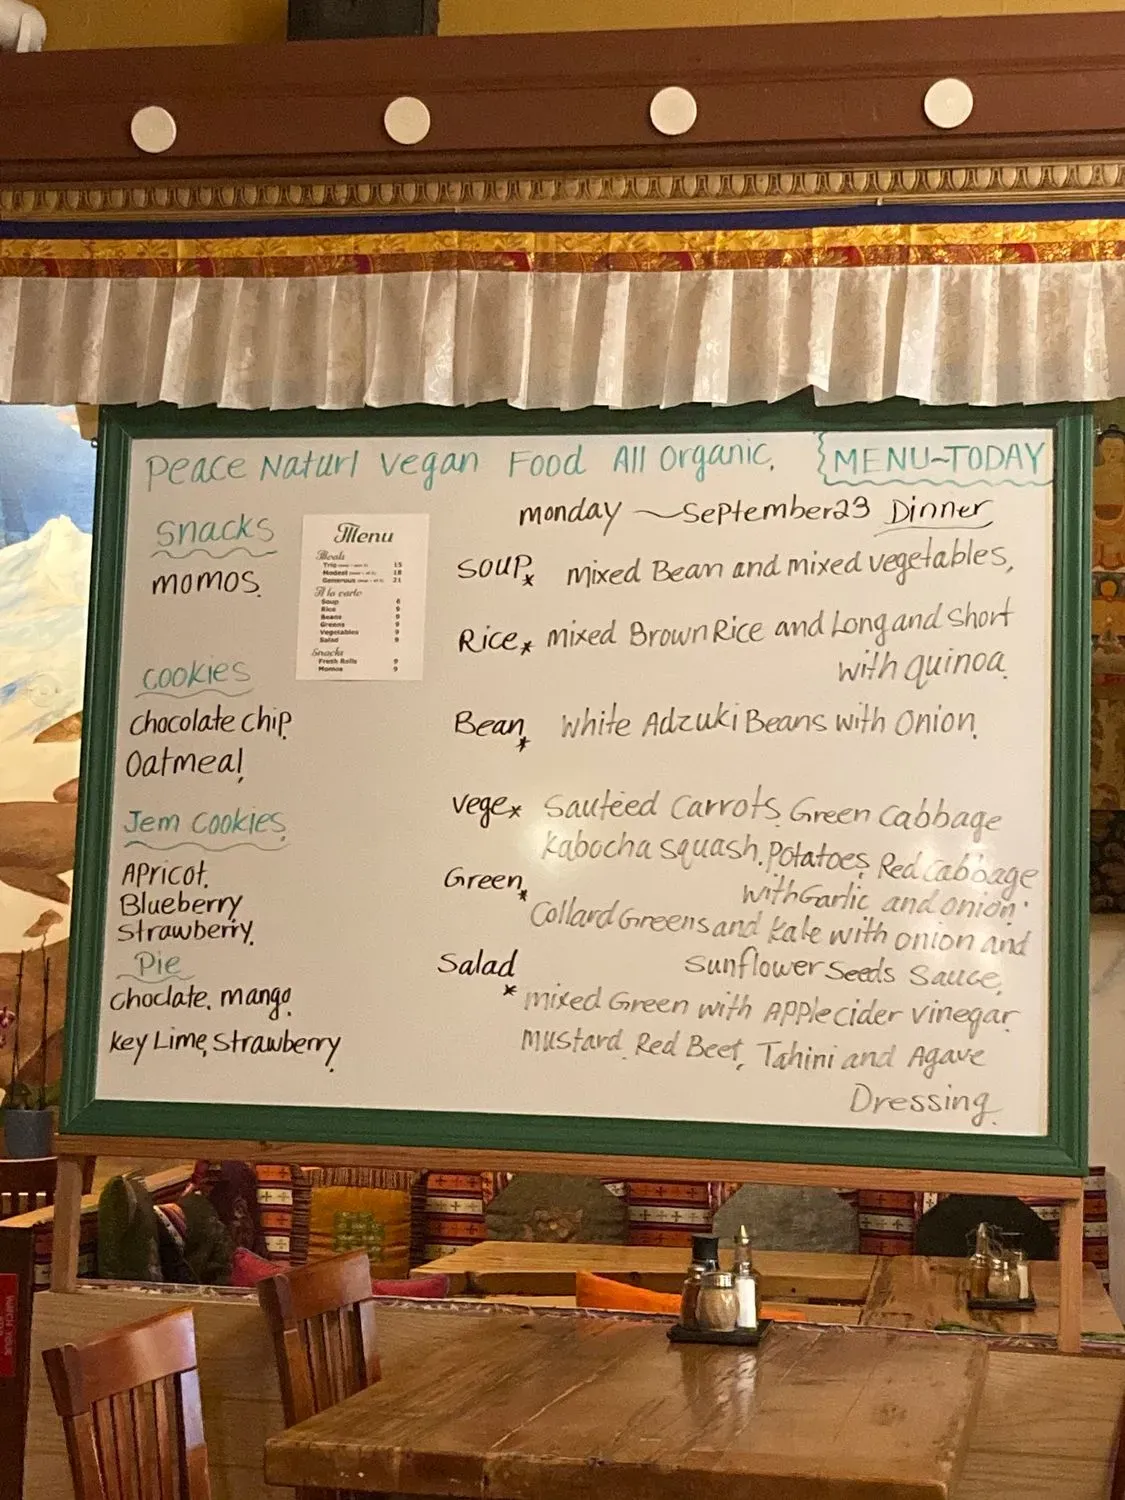 Peace Naturl Vegan Food All Organic.
MENU~TODAY
monday ~ September 23 Dinner
Snacks
momos.
Cookies
chocolate chip
Oatmeal
Jem Cookies.
Apricot.
Blueberry
Strawberry.
Pie
Choclate. mango.
Key Lime, Strawberry.
Menu
Meals
Trio 15
Modest 18
Generous 21
A la carte
Soup 6
Rice 9
Beans 9
Greens 9
Vegetables 9
Salad 9
Snacks
Fresh Rolls 9
Momos 9
Soup * mixed Bean and mixed vegetables,
Rice * mixed Brown Rice and Long and Short
with quinoa
Bean * White Adzuki Beans with Onion.
Vege * Sautéed Carrots, Green Cabbage
Kabocha squash, Potatoes, Red Cabbage
with Garlic and onion.
Green * Collard Greens and Kale with onion and
Sunflower Seeds Sauce,
Salad * mixed Green with Apple cider vinegar
mustard, Red Beet, Tahini and Agave
Dressing.
WATCH YOUR